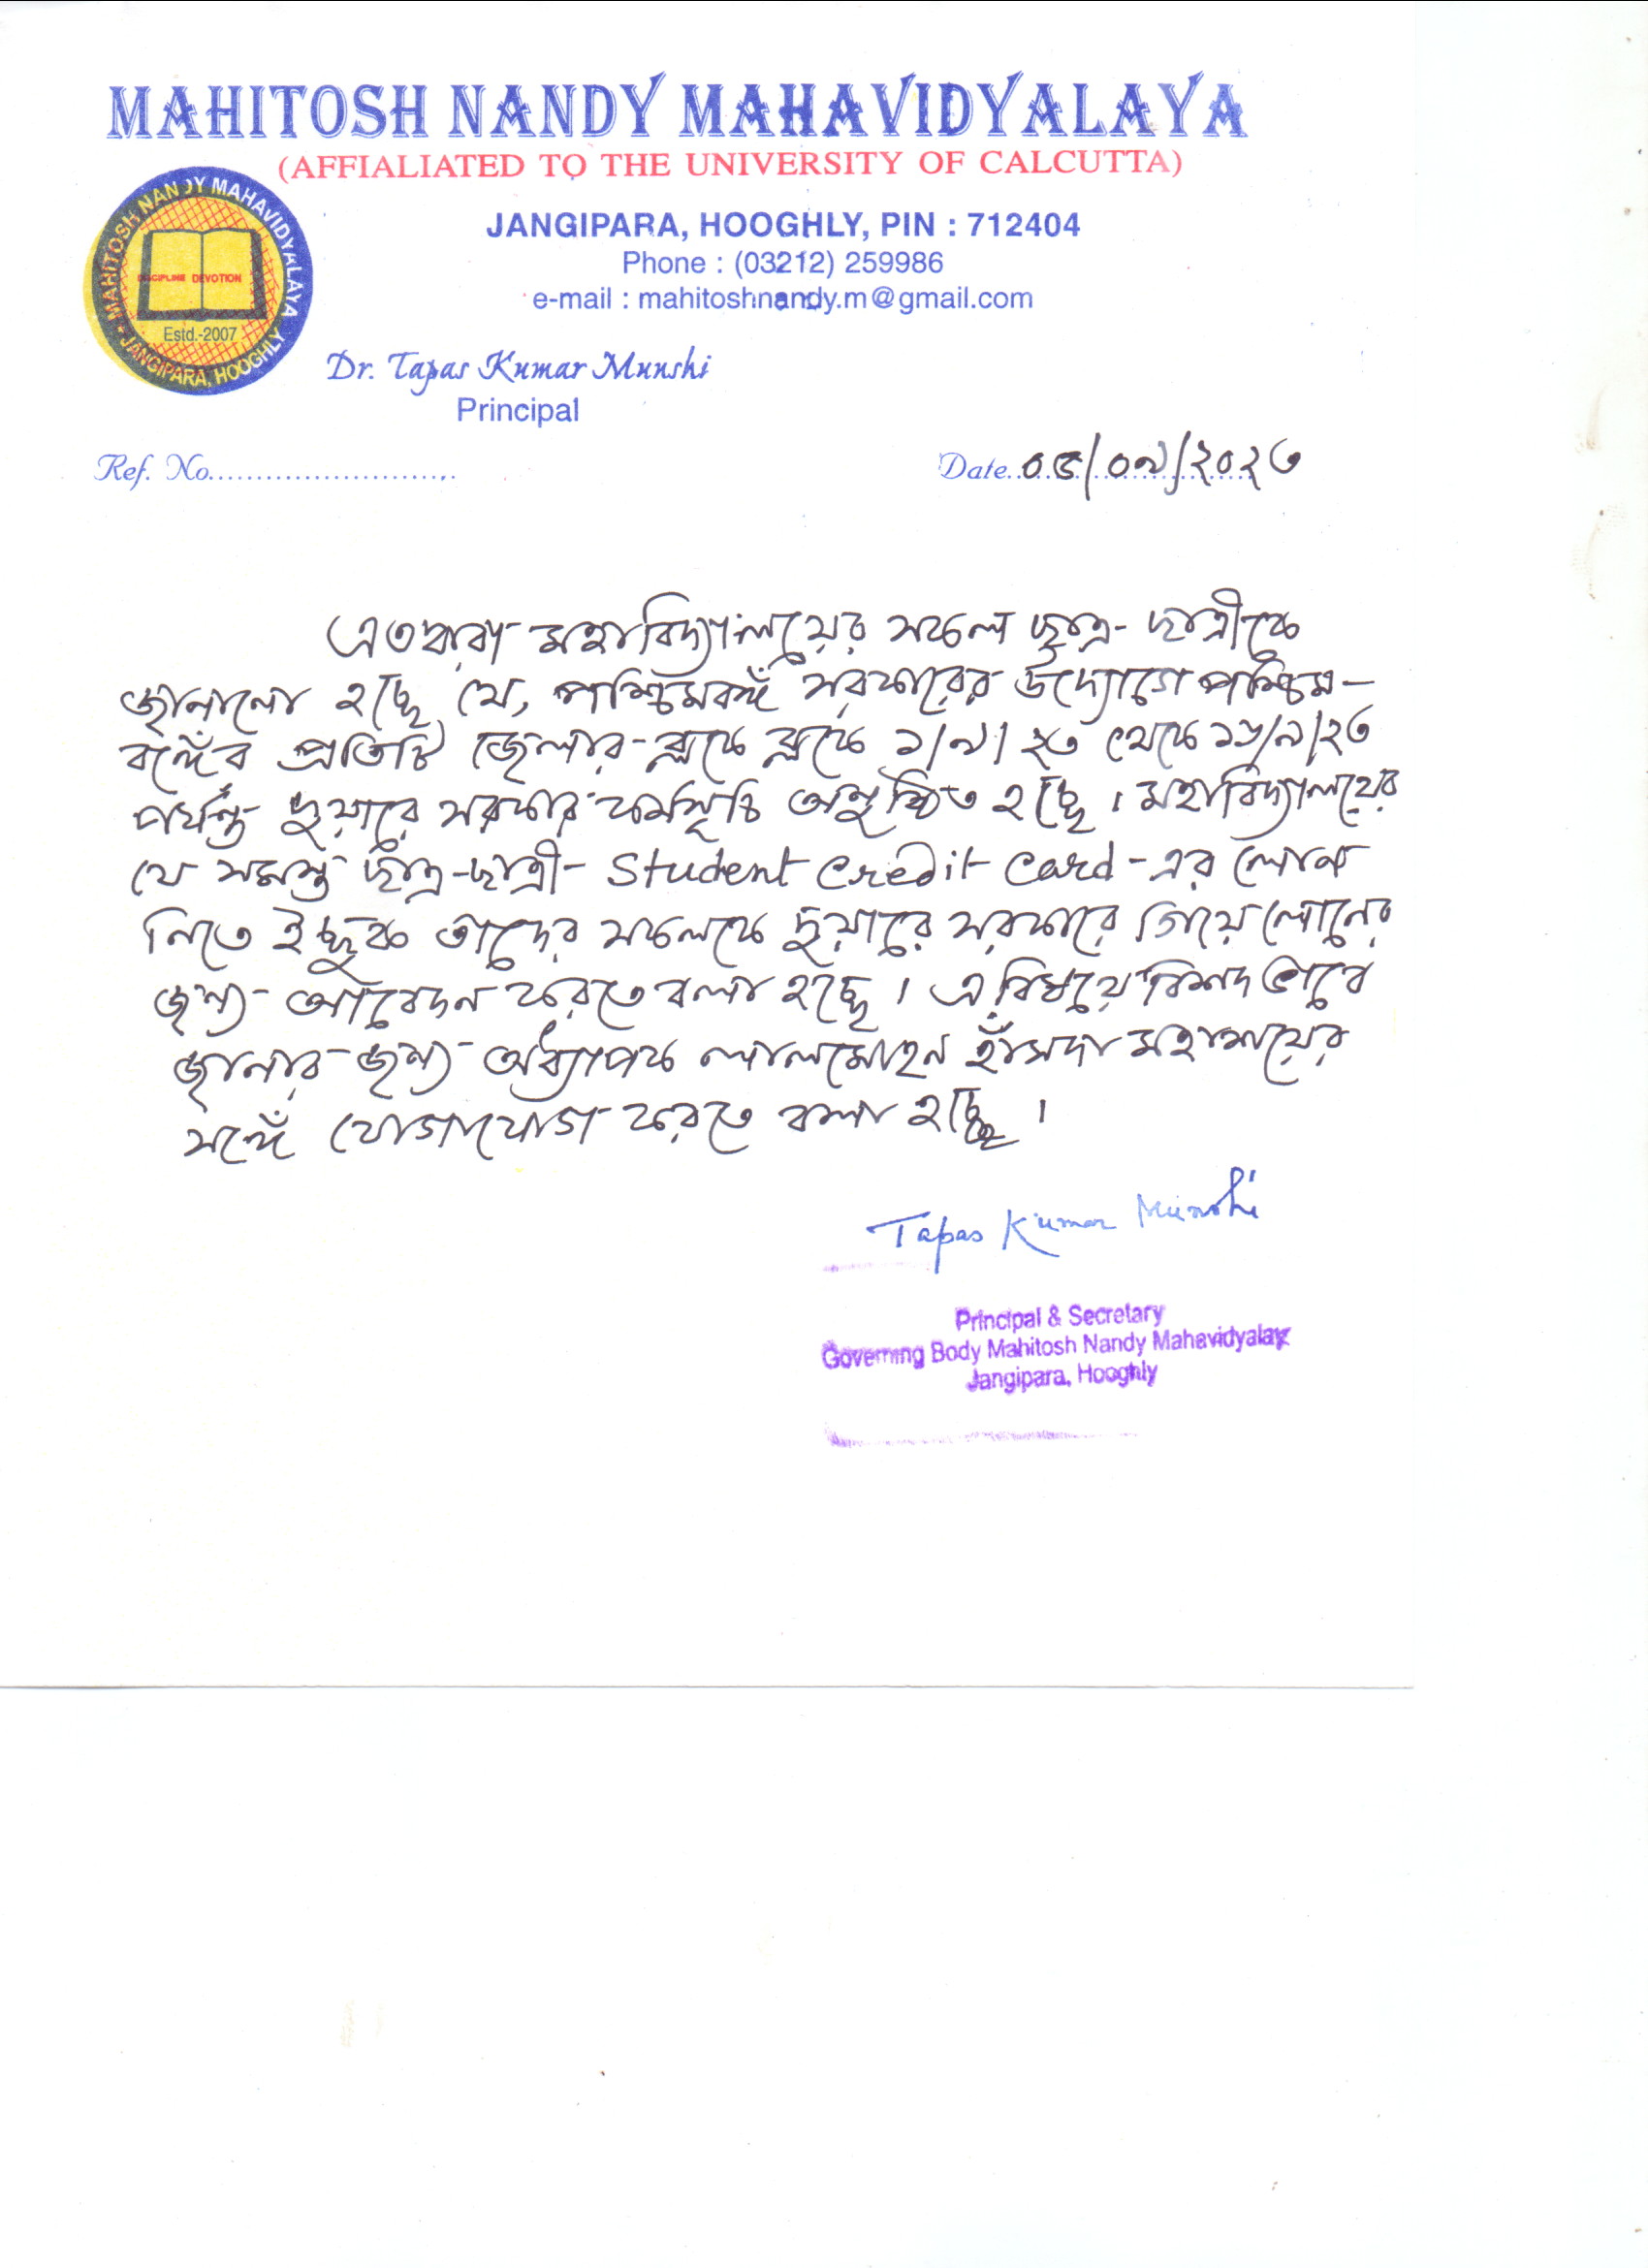 MAHITOSH NANDY MAHAVIDYALAYA
(AFFIALIATED TO THE UNIVERSITY OF CALCUTTA)
MAHITOSH NANDY MAHAVIDYALAYA
DISCIPLINE DEVOTION
Estd.-2007
JANGIPARA, HOOGHLY
JANGIPARA, HOOGHLY, PIN : 712404
Phone : (03212) 259986
e-mail : mahitoshnandy.m@gmail.com
Dr. Tapas Kumar Munshi
Principal
Ref. No..........................
Date..০৫/০৯/২০২৩
এতদ্বারা মহাবিদ্যালয়ের সকল ছাত্র-ছাত্রীকে
জানানো হচ্ছে যে, পশ্চিমবঙ্গ সরকারের উদ্যোগে পশ্চিম-
বঙ্গের প্রতিটি জেলার ব্লকে ব্লকে ১/৯/২৩ থেকে ১৬/৯/২৩
পর্যন্ত দুয়ারে সরকার কর্মসূচি অনুষ্ঠিত হচ্ছে। মহাবিদ্যালয়ের
যে সমস্ত ছাত্র-ছাত্রী Student Credit Card-এর লোন
নিতে ইচ্ছুক তাদের সকলকে দুয়ারে সরকারে গিয়ে লোনের
জন্য আবেদন করতে বলা হচ্ছে। এ বিষয়ে বিশদ ভাবে
জানার জন্য অধ্যাপক লালমোহন হাঁসদা মহাশয়ের
সঙ্গে যোগাযোগ করতে বলা হচ্ছে।
Tapas Kumar Munshi
Principal & Secretary
Governing Body Mahitosh Nandy Mahavidyalay
Jangipara, Hooghly